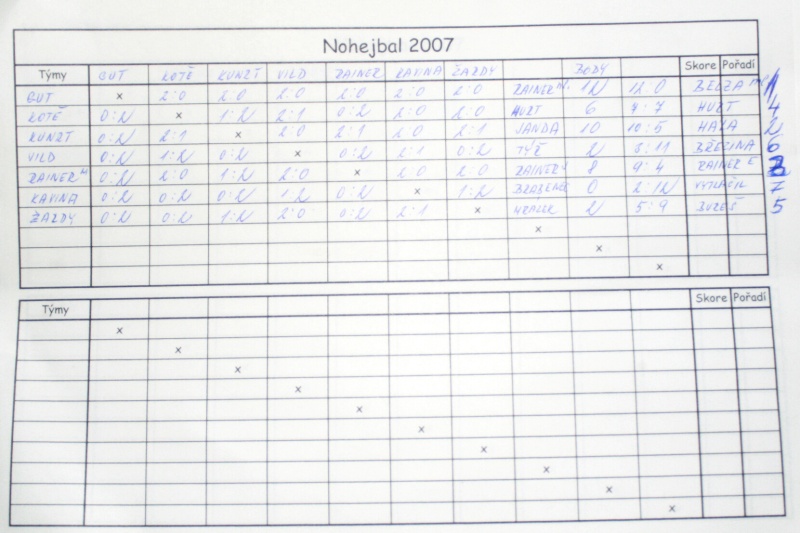 Nohejbal 2007
Týmy GUT LOTĚ KUNZT VILD RAINER KAVINA ŽAZDY BODY Skore Pořadí
GUT x 2:0 2:0 2:0 2:0 2:0 2:0 RAINER 12 12:0 1
LOTĚ 0:2 x 1:2 2:1 0:2 2:0 2:0 HURT 6 7:7 HURT 4
KUNZT 0:2 2:1 x 2:0 2:1 2:0 2:1 JANDA 10 10:5 2
VILD 0:2 1:2 0:2 x 0:2 2:1 0:2 2 BŘEZINA 6
RAINER 0:2 2:0 1:2 2:0 x 2:0 2:0 RAINER 8 9:4 RAINER 3
KAVINA 0:2 0:2 0:2 1:2 0:2 x 1:2 0 2:12 7
ŽAZDY 0:2 0:2 1:2 2:0 0:2 2:1 x 2 5:9 BUREŠ 5
x
x
x
Týmy Skore Pořadí
x
x
x
x
x
x
x
x
x
x